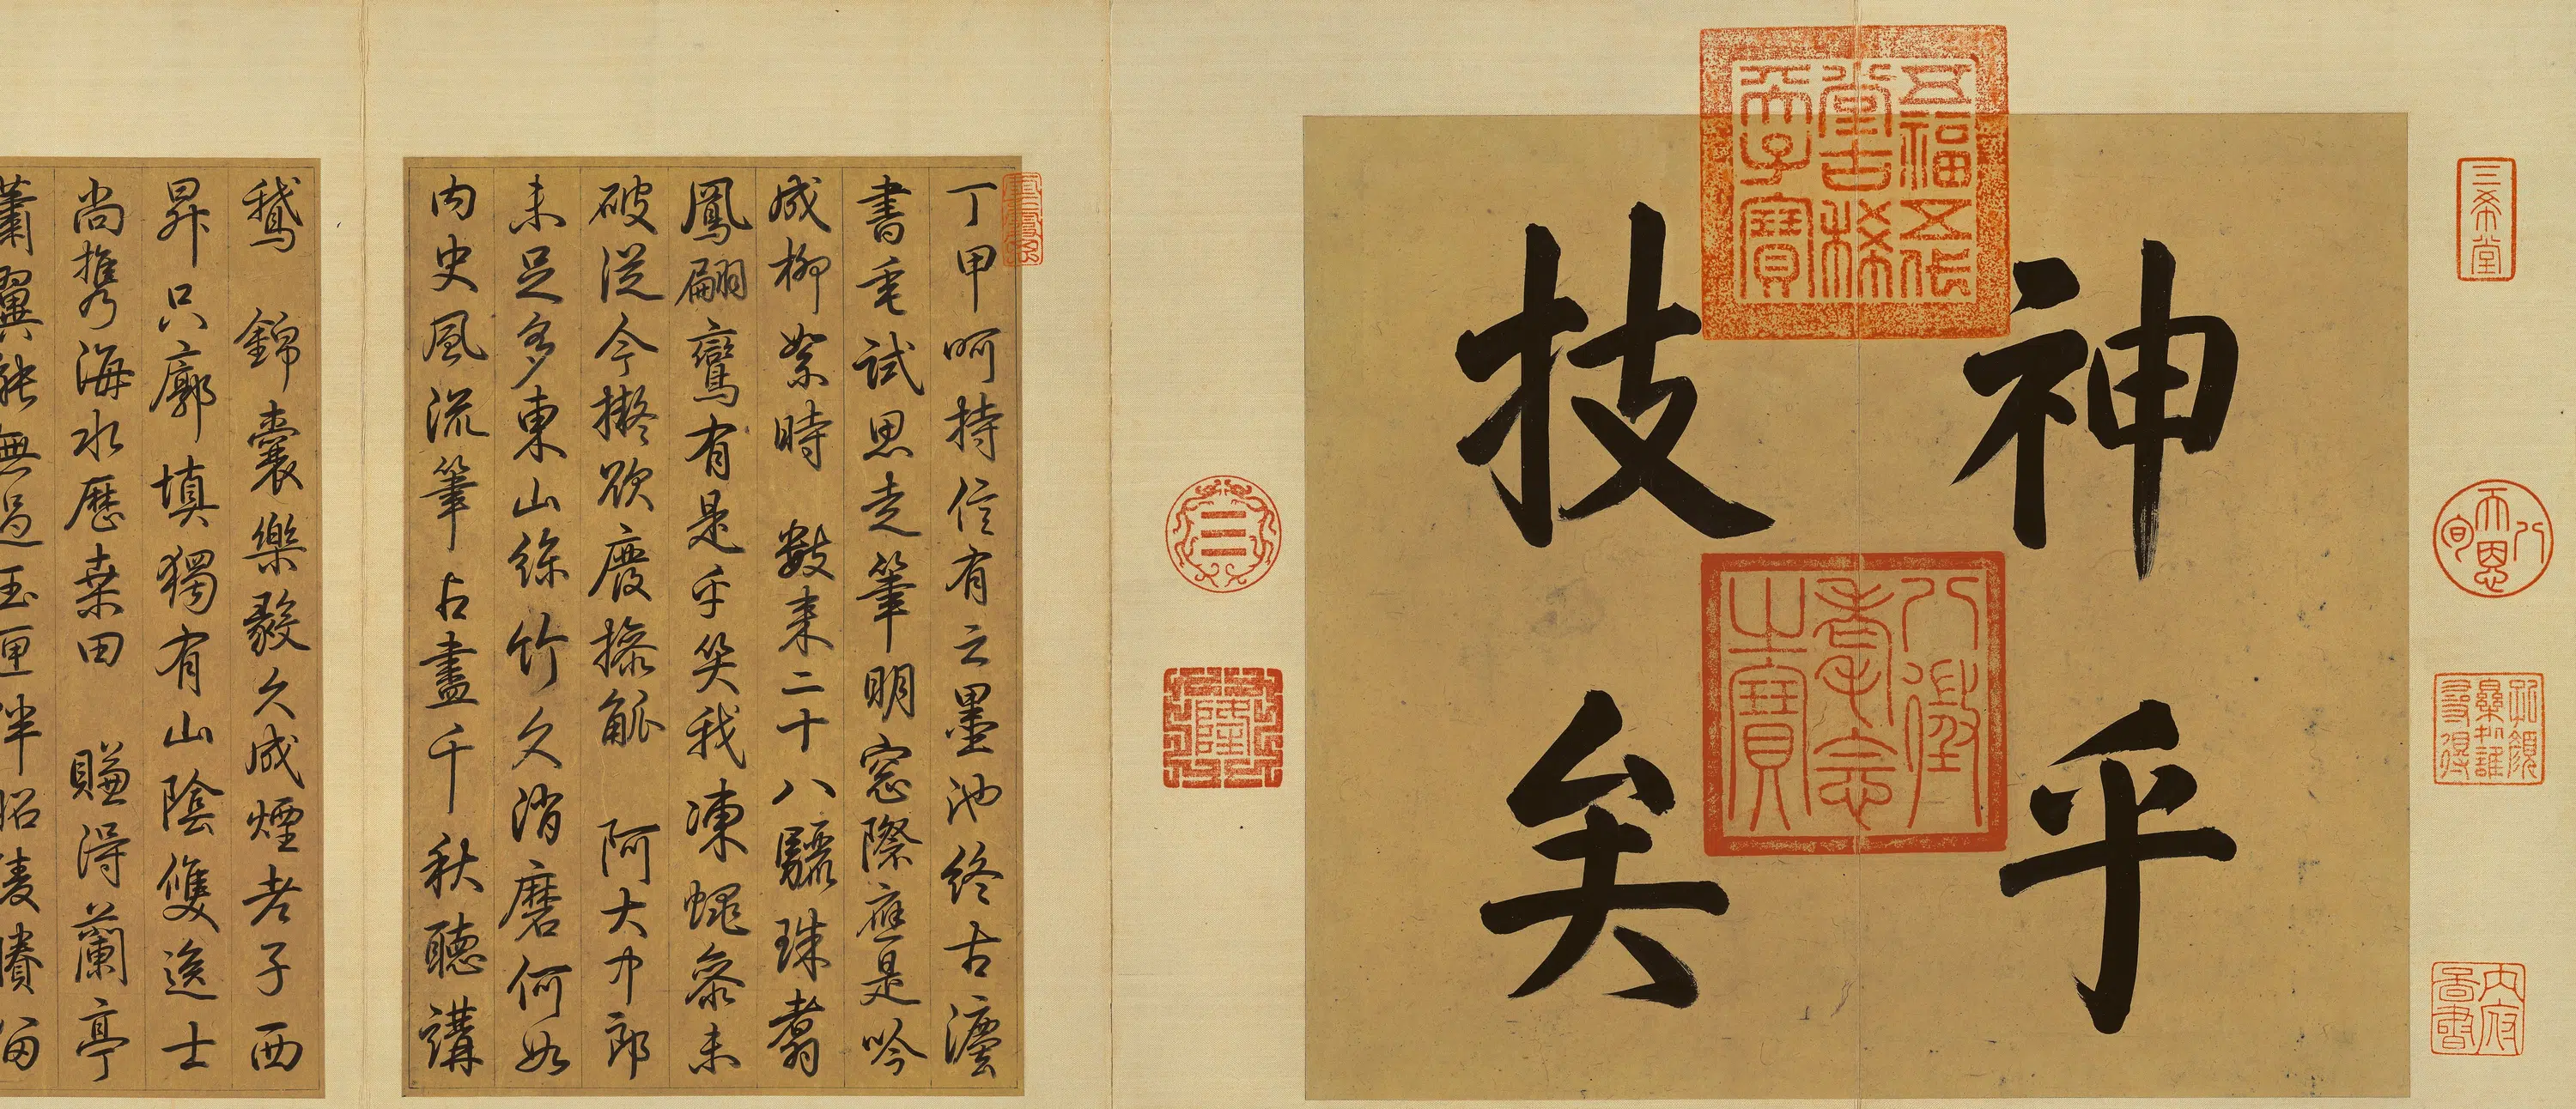 三希堂
八旬天恩
孔顏樂處誰尋得
五福五代堂古稀天子寶
八徵耄念之寶
神乎
技矣
☰
隆
丁甲呵持信有之墨池終古灋
書垂試思走筆明窓際應是吟
成柳絮時 數來二十八驪珠翥
鳳翩鸞有是乎笑我凍蠅參未
破從今擬欲廢操觚 阿大中郎
未足多東山絲竹久消磨何如
內史風流筆占盡千秋聽講
鵝 錦囊樂毅久成煙老子西
昇只廓填獨有山陰雙逸士
尚攜海水歷桑田 賺得蘭亭
蕭翼能無過玉匣伴昭陵賸留